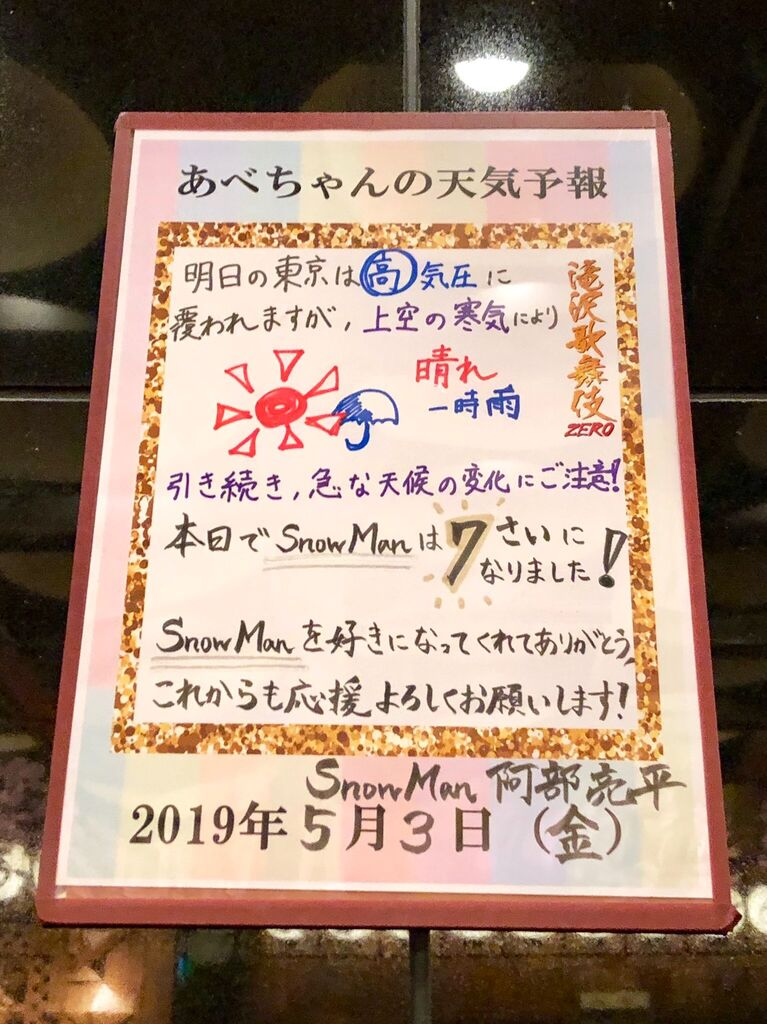 あべちゃんの天気予報
明日の東京は高気圧に
覆われますが,上空の寒気により
滝沢歌舞伎
ZERO
晴れ
一時雨
引き続き,急な天候の変化にご注意!
本日でSnowManは7さいに
なりました!
SnowManを好きになってくれてありがとう
これからも応援よろしくお願いします!
SnowMan 阿部亮平
2019年5月3日(金)